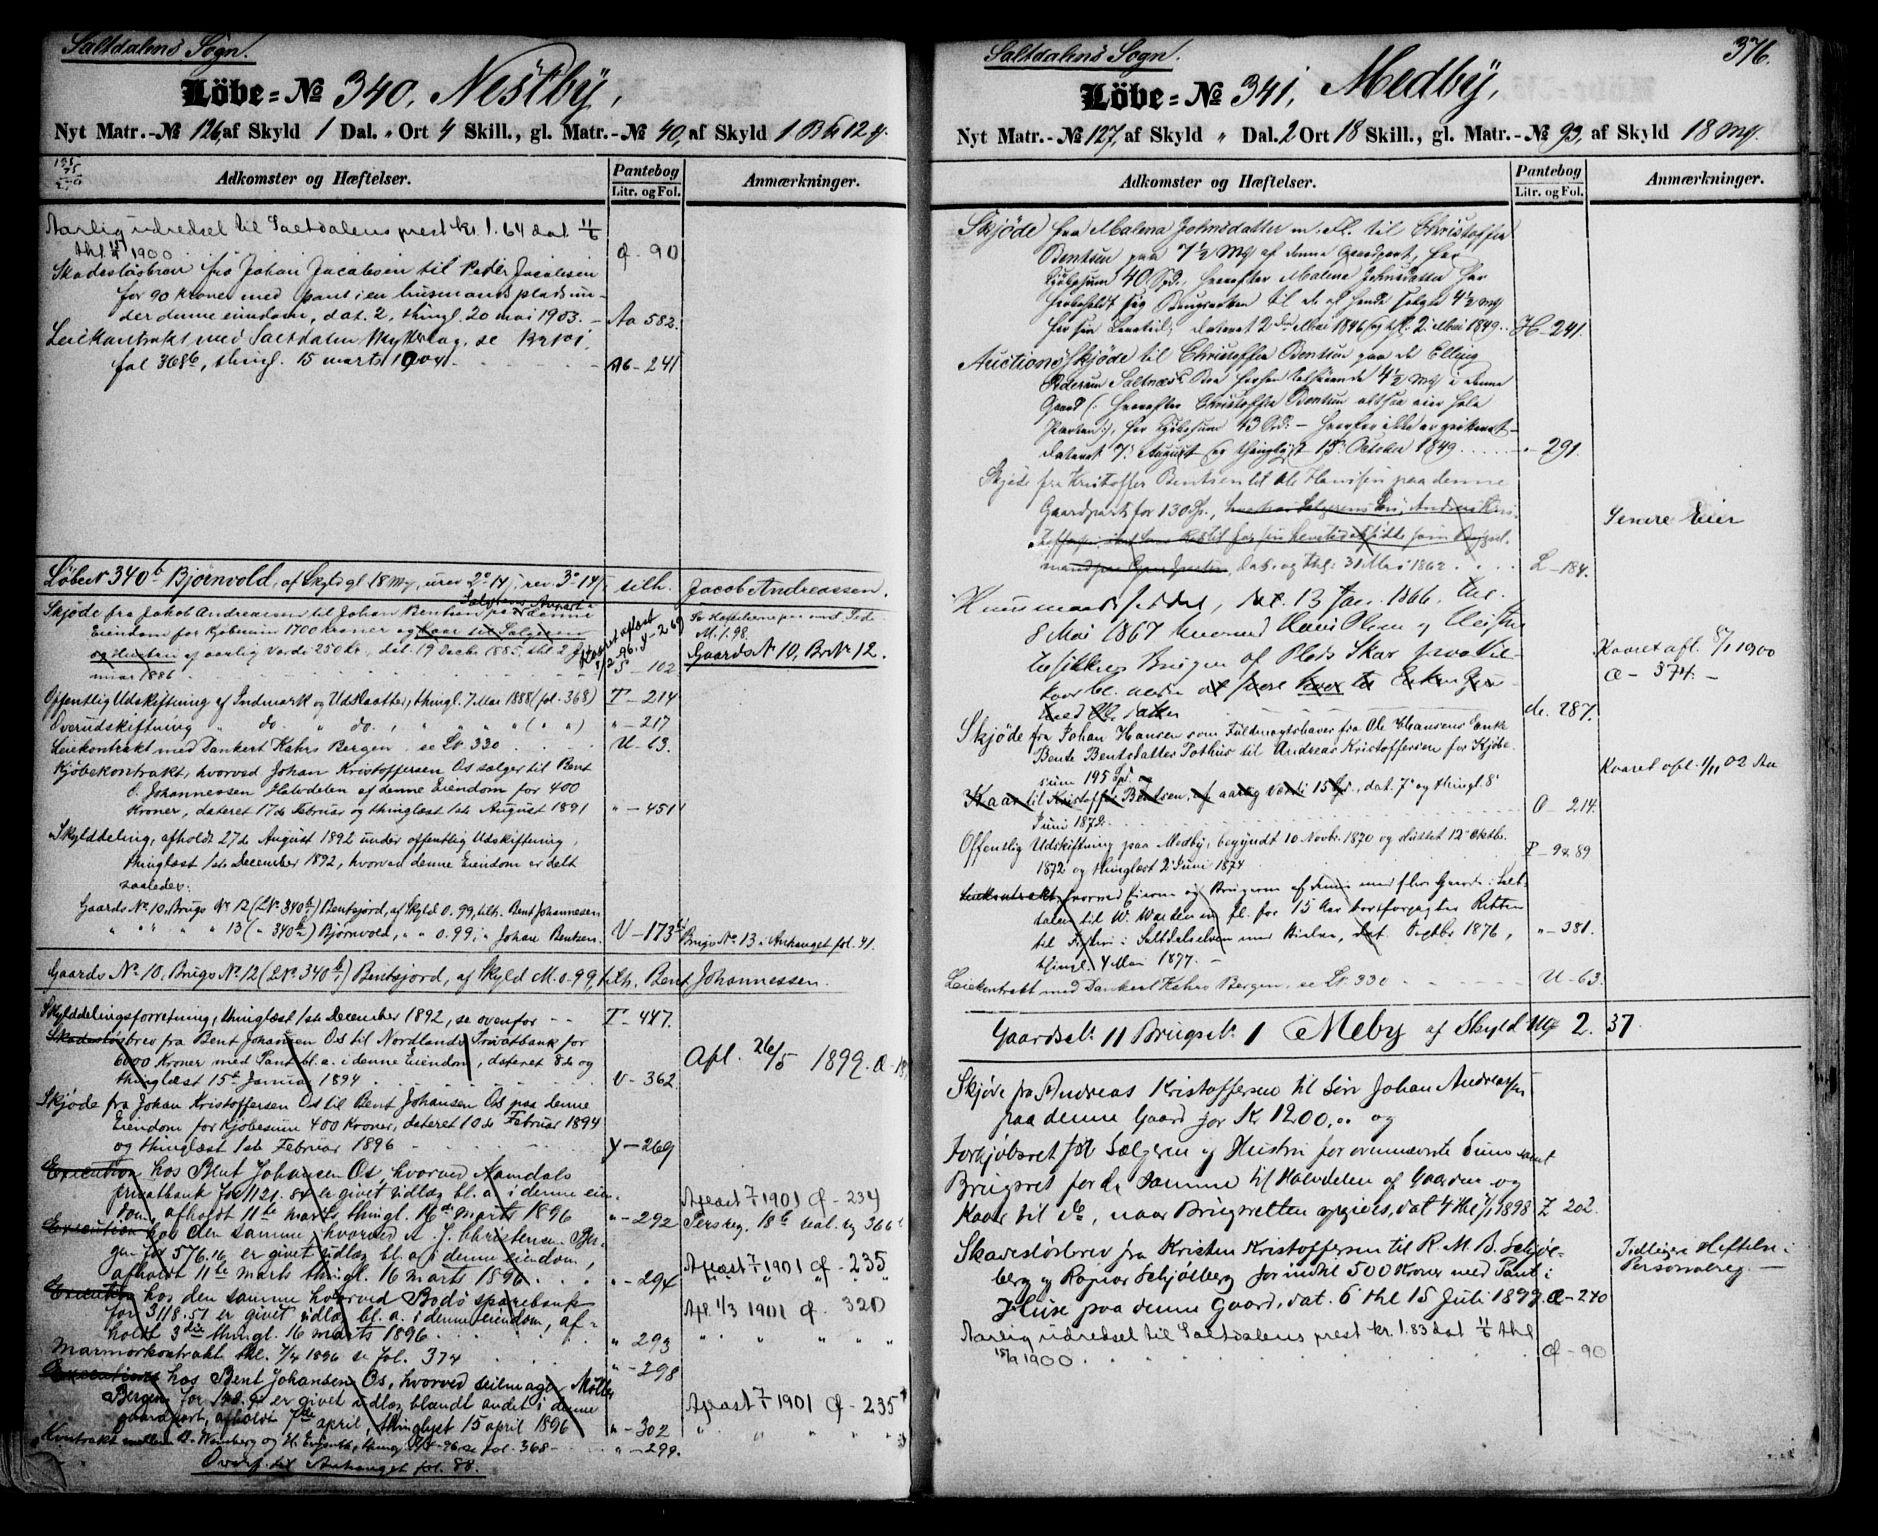 Saltdalens Sogn.
Löbe-No 340. Nestby,
Nyt Matr.-No 126, af Skyld 1 Dal. " Ort 4 Skill., gl. Matr.-No 40, af Skyld 1 B 12
Adkomster og Hæftelser.
Pantebog
Litr. og Fol.
Anmærkninger.
Aarlig udredsel til Saltdalens prest kr. 1.64 dat 11/6
thl 15/9 1900
Q - 90
Skadesløsbrev fra Johan Jacobsen til Peder Jacobsen
for 90 kroner med pant i en husmandsplads un-
der denne eiendom, dat. 2, thingl. 20 mai 1903. - Aa 582.
Leiekontrakt med Saltdalen se
fol 368b, thingl. 15 marts 1904. - Ab - 241
Løbenr 340b Bjørnvold, af Skyld gl 18 My, urev. 2 " 14, rev. 3 " 14, tilh. Jacob Andreassen.
Skjøde fra Jakob Andreassen til Johan Bentsen paa denne
Eiendom for Kjøbesum 1700 Kroner og Kaar til Sælgeren
og Hustru af aarlig Værdi 250 Kr., dat. 19 Decbr 1885, thl 2 Ja-
nuar 1886 S - 102
Gaards No 10, Br No 12.
Offentlig Udskiftning af Indmark og Udslaatter, thingl. 7 Mai 1888 (fol. 368) T - 214
Overudskiftning " do. " do., " " " ( " " ) " - 217
Leiekontrakt med Dankert Kahrs Bergen, se Lr 330 U - 63.
Kjøbekontrakt, hvorved Johan Kristoffersen Os sælger til Bent
Johannessen Halvdelen af denne Eiendom for 400
Kroner, dateret 17de Februar og thinglæst 1ste August 1891 " - 451
Skylddeling, afholdt 27de August 1892 under offentlig Udskiftning,
thinglæst 1ste December 1892, hvorved denne Eiendom er delt
saaledes:
Gaards No 10, Brugs No 12 (LNo 340b) Bentsjord, af Skyld 0.99, tilh. Bent Johannesen
" " " " 13 ( " 340b) Bjørnvold, " " 0.99, " Johan Bentsen. V - 173 Brugs No 13 i Anhanget fol. 41.
Gaards No 10. Brugs No 12 (LNo 340b) Bentsjord, af Skyld M. 0.99, tilh. Bent Johannessen.
Skylddelingsforretning, thinglæst 1ste December 1892, se ovenfor - - T - 447.
Skadesløsbrev fra Bent Johansen Os til Nordlands Privatbank for
6000 Kroner med Pant bl. a. i denne Eiendom, dateret 8de og
thinglæst 15de Januar 1894 V - 362.
Afl. 26/5 1899. Æ - 18
Skjøde fra Johan Kristoffersen Os til Bent Johansen Os paa denne
Eiendom for Kjøbesum 400 Kroner, dateret 10de Februar 1894
og thinglæst 1ste Februar 1896 Y - 269
Execution hos Bent Johansen Os, hvorved Namdals
privatbank for 1121.84 er givet udlæg bl. a. i denne eien-
dom, afholdt 11te marts thingl. 16de marts 1896 " - 292
Aflæst 7 1901 Q - 234
Execution hos den samme, hvorved A. J. Christensen Ber-
gen for 576.16 er givet udlæg bl. a. i denne eiendom,
afholdt 11te marts thingl. 16 marts 1896. " - 294
Aflæst 7 1901 Q - 235
Execution hos den samme hvorved Bodø sparebank
for 3118.51 er givet udlæg bl. a. i denne eiendom, af-
holdt 3die thingl. 16 marts 1896 " 293
Afl. 1/3 1901 Q. 320
Marmorkontrakt thl. 7/4 1896 se fol. 374 " - 298
Executions hos Bent Johansen Os, hvorved seilmager Møller
Bergen for er givet udlæg blandt andet i denne
gaardpart, afholdt 7de april, thinglyst 15 april 1896 " - 302
Aflæst 7 1901 Q - 235
Kontrakt mellem se fol. 368 " - 299.
Overf. til Anhanget fol. 88.
376.
Saltdalens Sogn.
Löbe-No 341, Medby,
Nyt Matr.-No 127, af Skyld " Dal. 2 Ort 18 Skill., gl. Matr.-No 93, af Skyld 18 My.
Adkomster og Hæftelser.
Pantebog
Litr. og Fol.
Anmærkninger.
Skjøde fra Malena Johnsdatter m. fl. til Christoffer
Bentsen paa 7½ My af denne Gaardpart, for
Kjøbesum 40 Spd., hvorefter Malena Johnsdatter har
forbeholdt sig Brugsretten til de af hende solgte 4½ My
for sin Levetid, dateret 2den Mai 1846 og thl. 2 Mai 1849. H - 241.
Auctionsskjøde til Christoffer Bentsen paa de Elling
Pedersen Saltnæs Bo forhen tilhørende 4½ My i denne
Gaard (: hvorefter Christoffer Bentsen altsaa eier hele
Parten:), for Kjøbesum 43 Spd. -
dateret 7. August og thinglyst 15 October 1849 " - 291.
Skjøde fra Kristoffer Bentsen til Ole Hansen paa denne
Gaardpart for 130 Sp.,
dat. og thl. 31 Mai 1862 L - 184.
Senere Eier
Huusmandsseddel, dat. 13 Jan. 1866, thl.
8 Mai 1867 hvorved Hans Olsen og Hustru
tilsikkres Brugen af Plads Skar
M. 287.
Kaaret afl. 8/1 1900
Æ - 374. -
Skjøde fra Johan Hansen som Fuldmægtighaver fra Ole Hansens Enke
Bente Bentsdatter Pothus til Andreas Kristoffersen for Kjøbe-
sum 195 Spd. og
Kaar til Kristoffer Bentsen, af aarlig Værdi 15 Spd., dat. 7de og thingl. 8
Juni 1872. O - 214.
Kaaret afl. 1/11 02
Offentlig Udskiftning paa Medby, begyndt 10 Novbr. 1870 og sluttet 12 Oktbr.
1872 og thinglæst 2 Juni 1874 P - 9 & 89
Leiekontrakt, hvorved Eierne og Brugerne af denne med flere Gaarde i Salt-
dalen til W. Walden m. fl. for 15 Aar bortforpagter Retten
til Fiskeri i Saltdalselven med Bielve, dat. Septbr 1876,
thingl. 4 Mai 1877. - " - 381.
Leiekontrakt med Dankert Kahrs Bergen, se Lr 330 U - 63.
Gaards No 11 Brugs No 1 Meby af Skyld My 2.37
Skjøde fra Andreas Kristoffersen til Søn Johan Andreassen
paa denne Gaard for Kr 1200,00 og
Forkjøbsret for Sælgeren og Hustru for ovennævnte Sum samt
Brugsret for de samme til Halvdelen af Gaarden og
Kaar til do, naar Brugsretten opgives, dat 4 thl 7/1 1898 Z 202.
Skadesløsbrev fra Kristen Kristoffersen til R. M. B. Schjøl-
berg og Ragnar Schjølberg for indtil 500 Kroner med Pant i
Huse paa denne Gaard, dat. 6 thl 15 Juli 1899. Æ - 240
Tidligere Heftelser i
Personalreg. -
Aarlig udredsel til Saltdalens prest kr. 1.83 dat 11/6 thl
15/9 1900 Q - 90